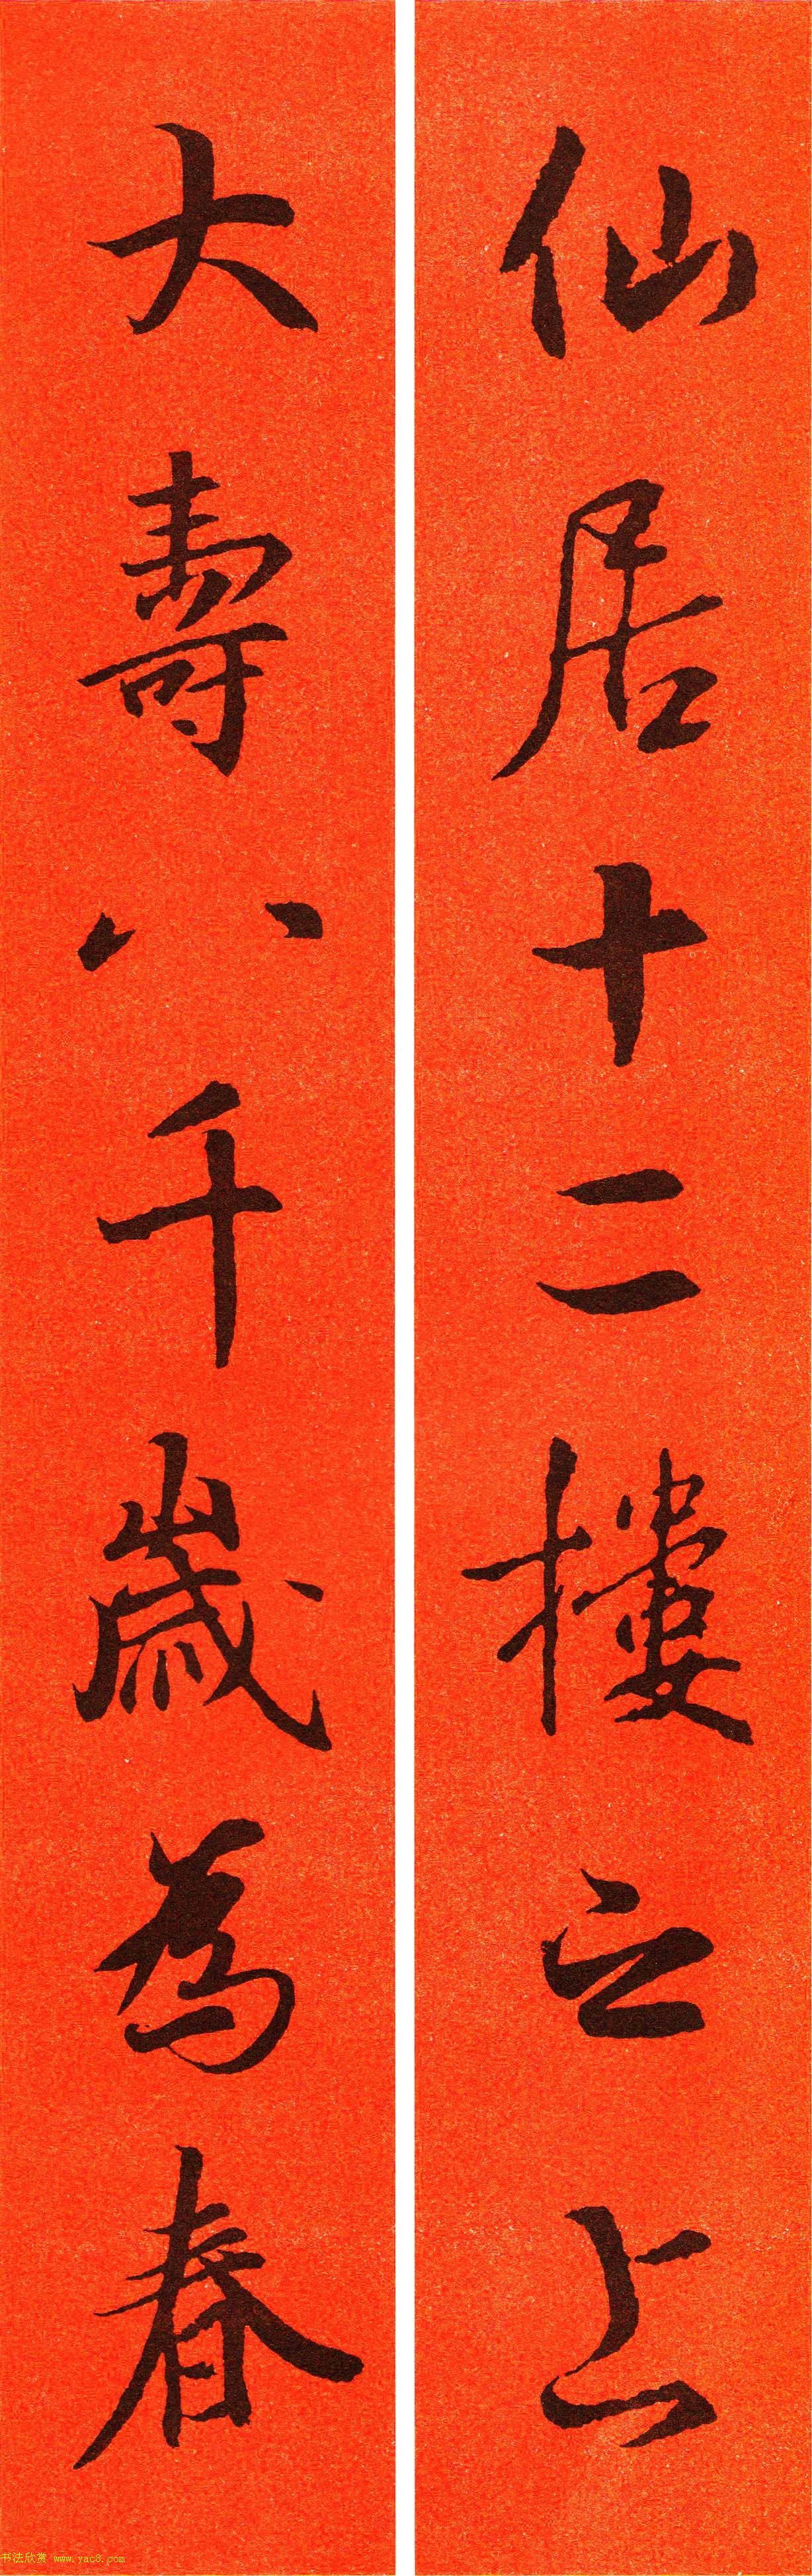 仙居十二樓之上
大壽八千歲為春
书法欣赏 www.yac8.com